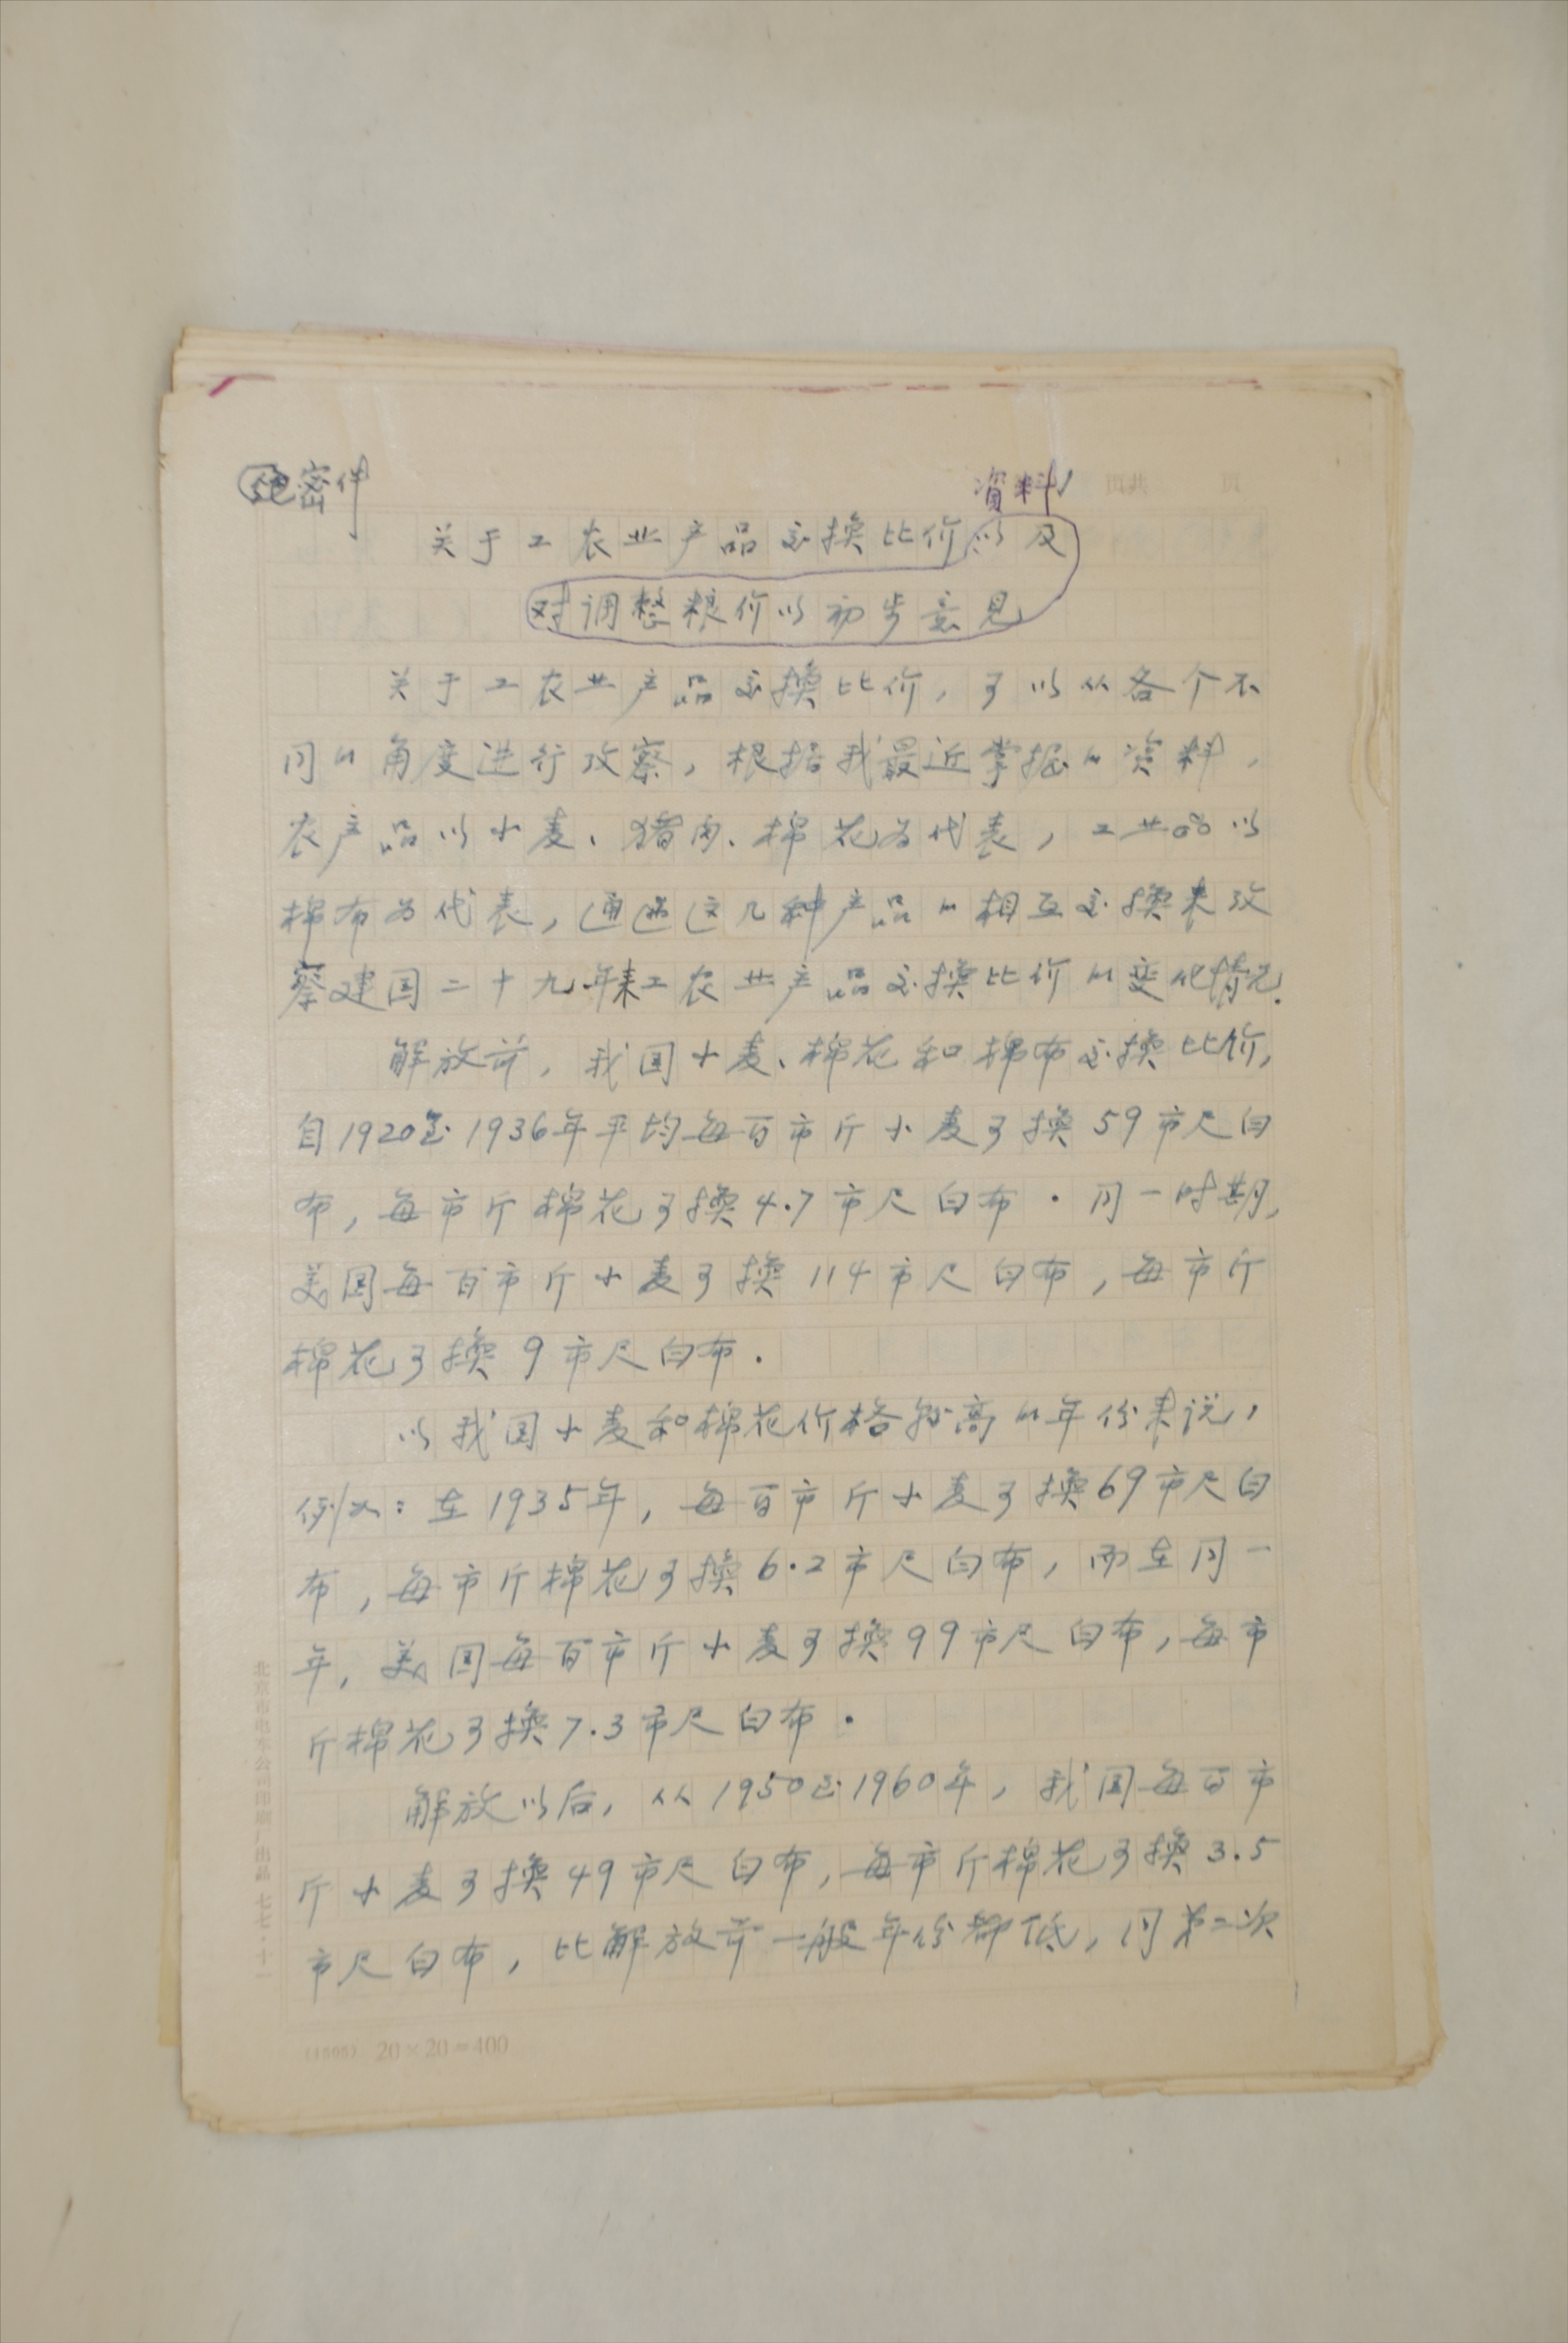 绝密件
资料
页共 页
关于工农业产品交换比价以及
对调整粮价的初步意见
关于工农业产品交换比价,可以从各个不
同的角度进行考察,根据我最近掌握的资料,
农产品以小麦、猪肉、棉花为代表,工业品以
棉布为代表,通过这几种产品的相互交换来考
察建国二十九年来工农业产品交换比价的变化情况.
解放前,我国小麦、棉花和棉布交换比价,
自1920至1936年平均每百市斤小麦可换59市尺白
布,每市斤棉花可换4.7市尺白布.同一时期,
美国每百市斤小麦可换114市尺白布,每市斤
棉花可换9市尺白布.
以我国小麦和棉花价格较高的年份来说,
例如:在1935年,每百市斤小麦可换69市尺白
布,每市斤棉花可换6.2市尺白布,而在同一
年,美国每百市斤小麦可换99市尺白布,每市
斤棉花可换7.3市尺白布.
解放以后,从1950至1960年,我国每百市
斤小麦可换49市尺白布,每市斤棉花可换3.5
市尺白布,比解放前一般年份都低,同第二次
(1505) 20×20=400